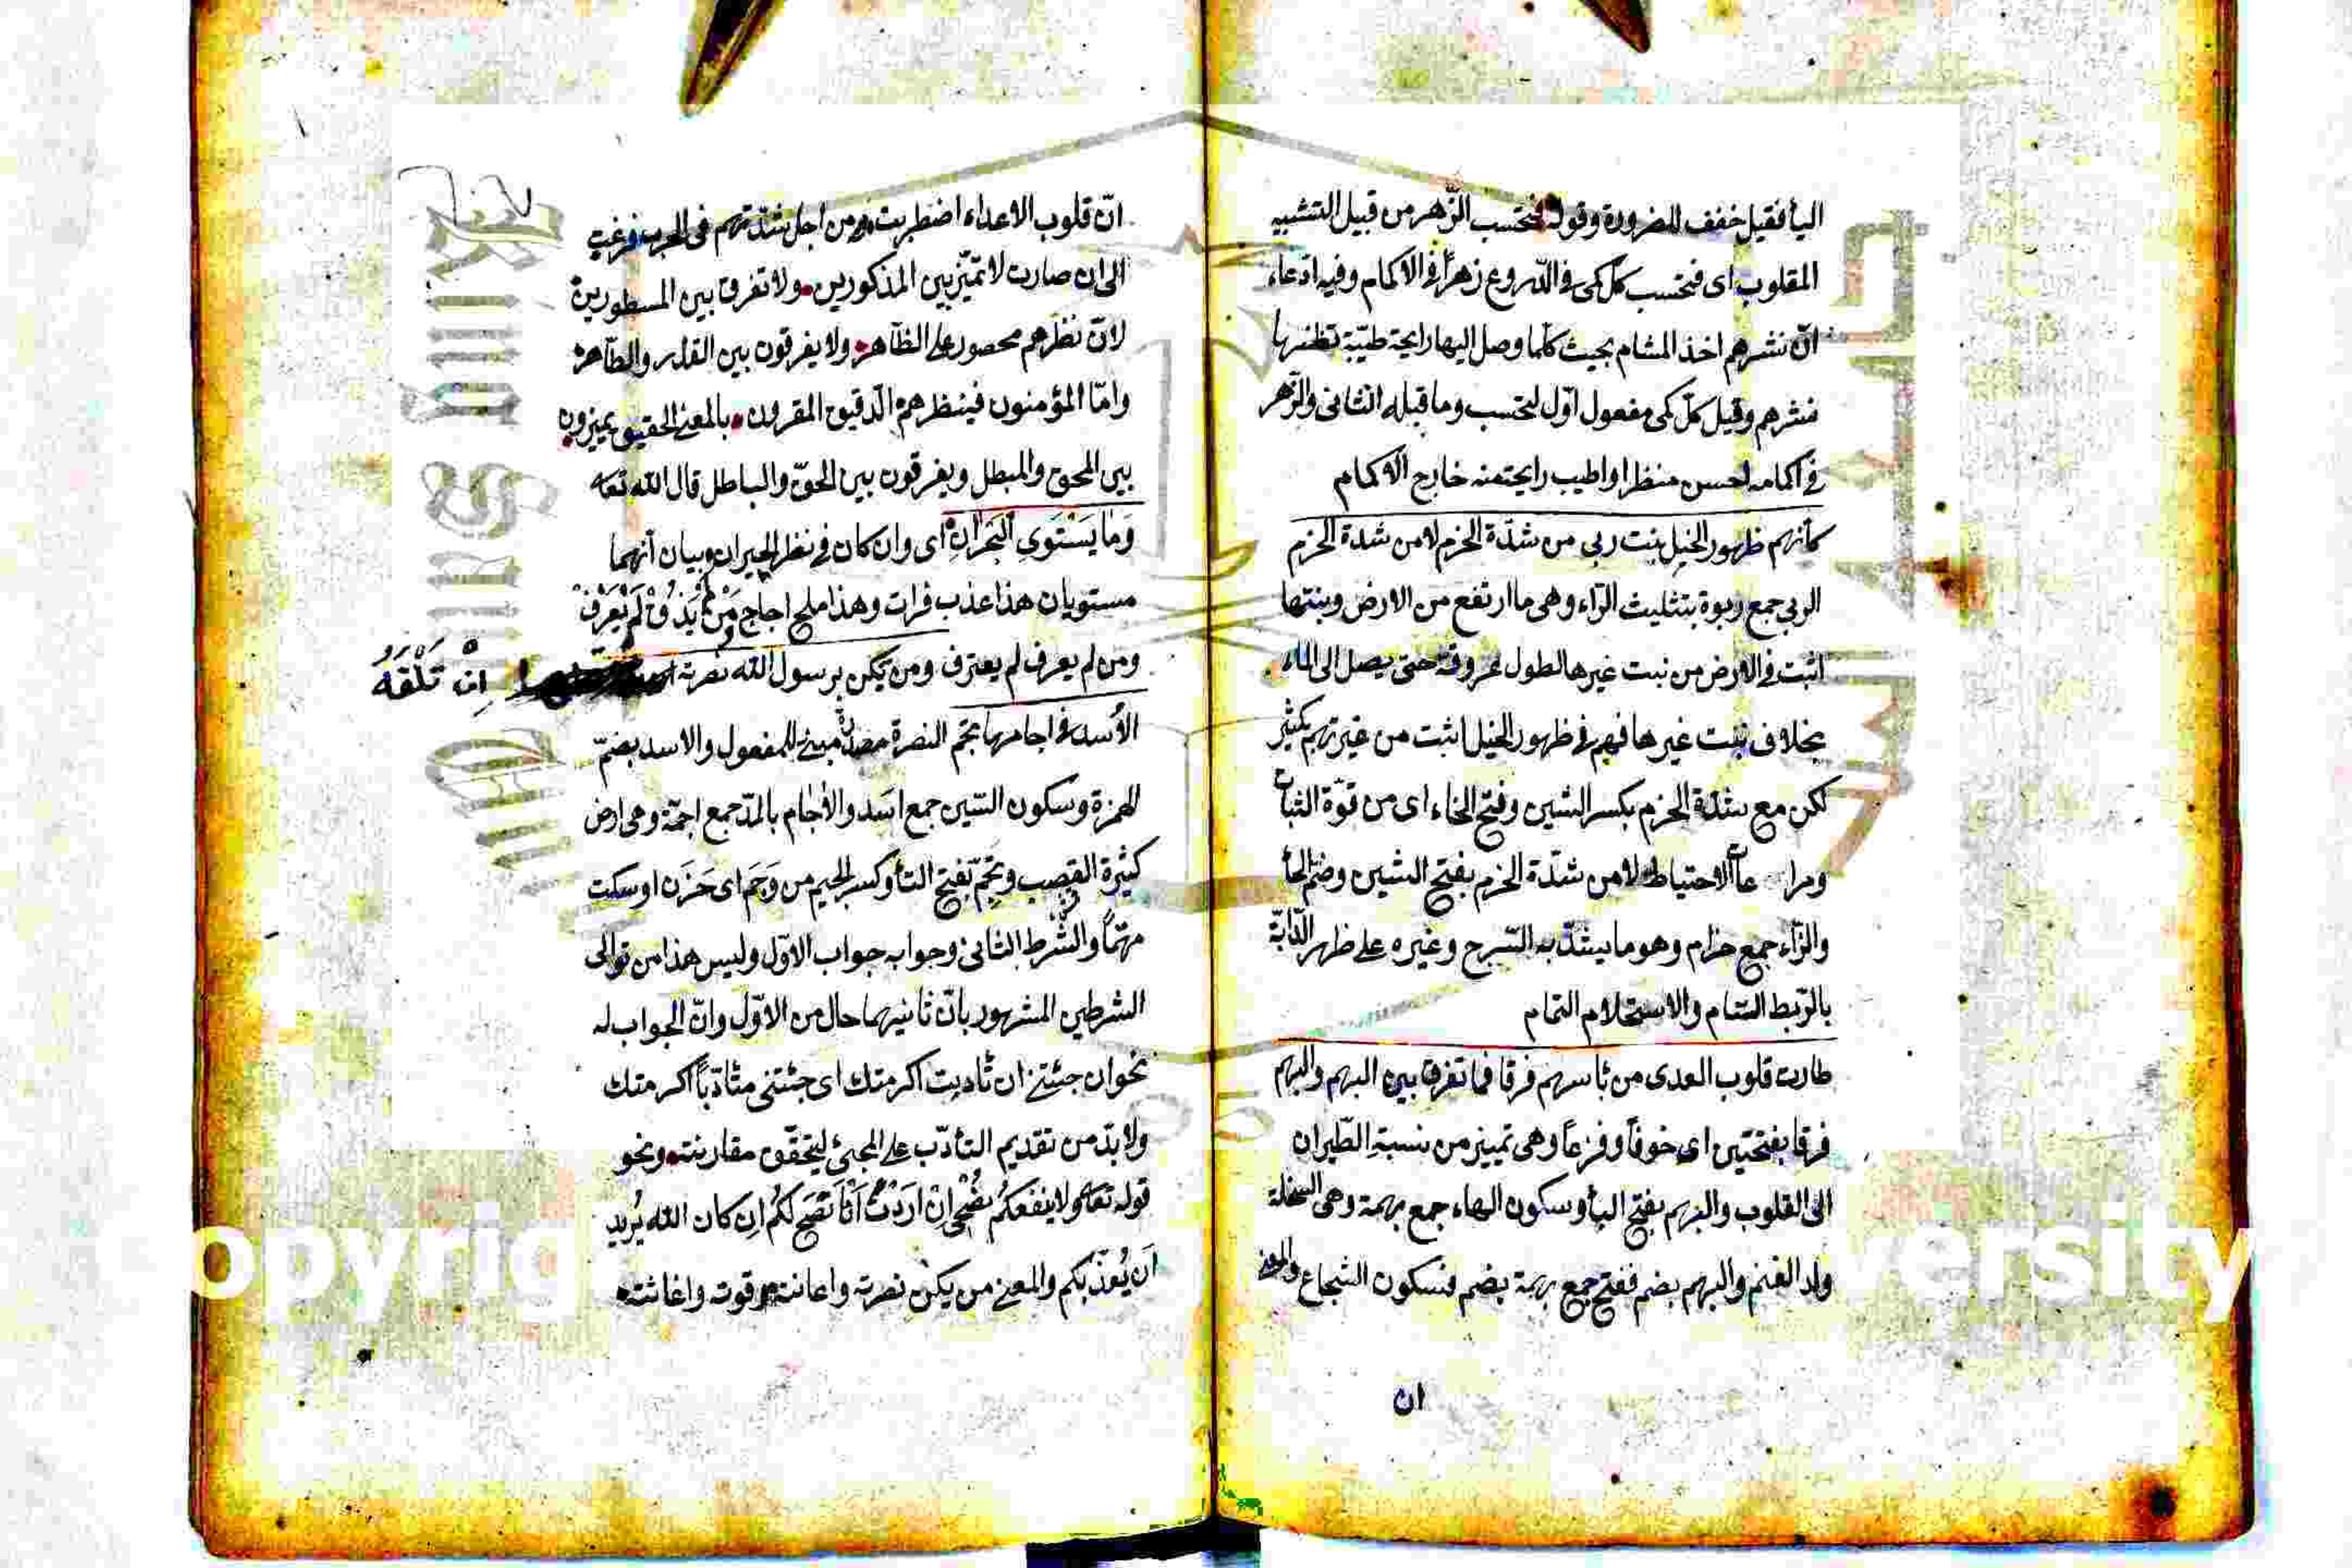 اليأ فقيل خفف للضرورة وقوله فتحسب الزّهر من قبيل التشبيه
المقلوب اى فتحسب كلّ كمى فى الدّروع زهرًا فى الاكمام وفيه ادعاء
انّ نشرهم اخذ المشام بحيث كلّما وصل اليها رايحة طيّبة تظنها
نشرهم وقيل كلّ كمى مفعول اوّل لتحسب وما قبله الثانى والزّهر
فى اكمامه احسن منظرا واطيب رايحة منه خارج الاكمام
كأنهم ظهور الخيل نبت ربى من شدّة الحزم لا من شدة الحزم
الربى جمع ربوة بتثليث الرّاء وهى ما ارتفع من الارض ونبتها
اثبت فى الارض من نبت غيرها لطول عروقه حتى يصل الى الماء
بخلاف نبت غيرها فهم فى ظهور الخيل اثبت من غيرهم بكثير
لكن مع شدّة الحزم بكسر الشين وفتح الحاء اى من قوّة الثبات
ومراعاة الاحتياط لا من شدّة الحزم بفتح الشين وضم الحأ
والزّاء جمع حزام وهو ما يشدّ به السّرج وغيره على ظهر الدّابّة
بالرّبط التام والاستحلام التمام
طارت قلوب العدى من بأسهم فرقا فما تفرق بين البهم والبهم
فرقا بفتحتين اى خوفاً وفزعاً وهى تمييز من نسبة الطّيران
الى القلوب والبهم بفتح البأ وسكون الهاء جمع بهمة وهى السخلة
ولد الغنم والبهم بضم ففتح جمع بهمة بضم فسكون الشجاع والمعنى
ان
انّ قلوب الاعداء اضطربت ومن اجل شدّتهم فى الحرب فزعت
الى ان صارت لا تميّز بين المذكورين ولا تفرق بين المسطورين
لانّ نظرهم محصور على الظّاهر ولا يفرقون بين القذر والطّاهر
وامّا المؤمنون فبنظرهم الدّقيق المقرون بالمعنى الحقيق يميزون
بين المحق والمبطل ويفرقون بين الحقّ والباطل قال الله تعا
وَمَا يَسْتَوِى الْبَحْرَانِ اى وان كان فى نظر الحيران وبيان أنهما
مستويان هذا عذب فرات وهذا ملح اجاج مَنْ لَمْ يَذُقْ لَمْ يَعْرِفْ
ومن لم يعرف لم يعترف ومن يكن برسول الله نصرته اِنْ تَلْقَهُ
الأسد فى اجامها تجم النصرة مصدر مبنى للمفعول والاسد بضمّ
الهمزة وسكون السّين جمع اسَد والأجام بالمدّ جمع اجمّة وهى ارض
كثيرة القصب وتَجِمّ بفتح التأ وكسر الجيم من وَجَم اى حَزَن او سكت
مهتمًّا والشّرط الثانى وجوابه جواب الاوّل وليس هذا من توالى
الشرطين المشهور بانّ ثانيهما حال من الاوّل وانّ الجواب له
نحو ان جئتنى ان تأدبت اكرمتك اى جئتنى متأدّباً اكرمتك
ولا بدّ من تقديم التأدّب على المجئ ليتحقّق مقارنته ونحو
قوله تعا ولا ينفعكُم نُصْحِى اِنْ ارَدْتُ اَنْ اَنْصَحَ لكُم اِن كان الله يُريد
اَن يُعذّبكم والمعنى من يكن نصرته واعانته وقوته واغاثته